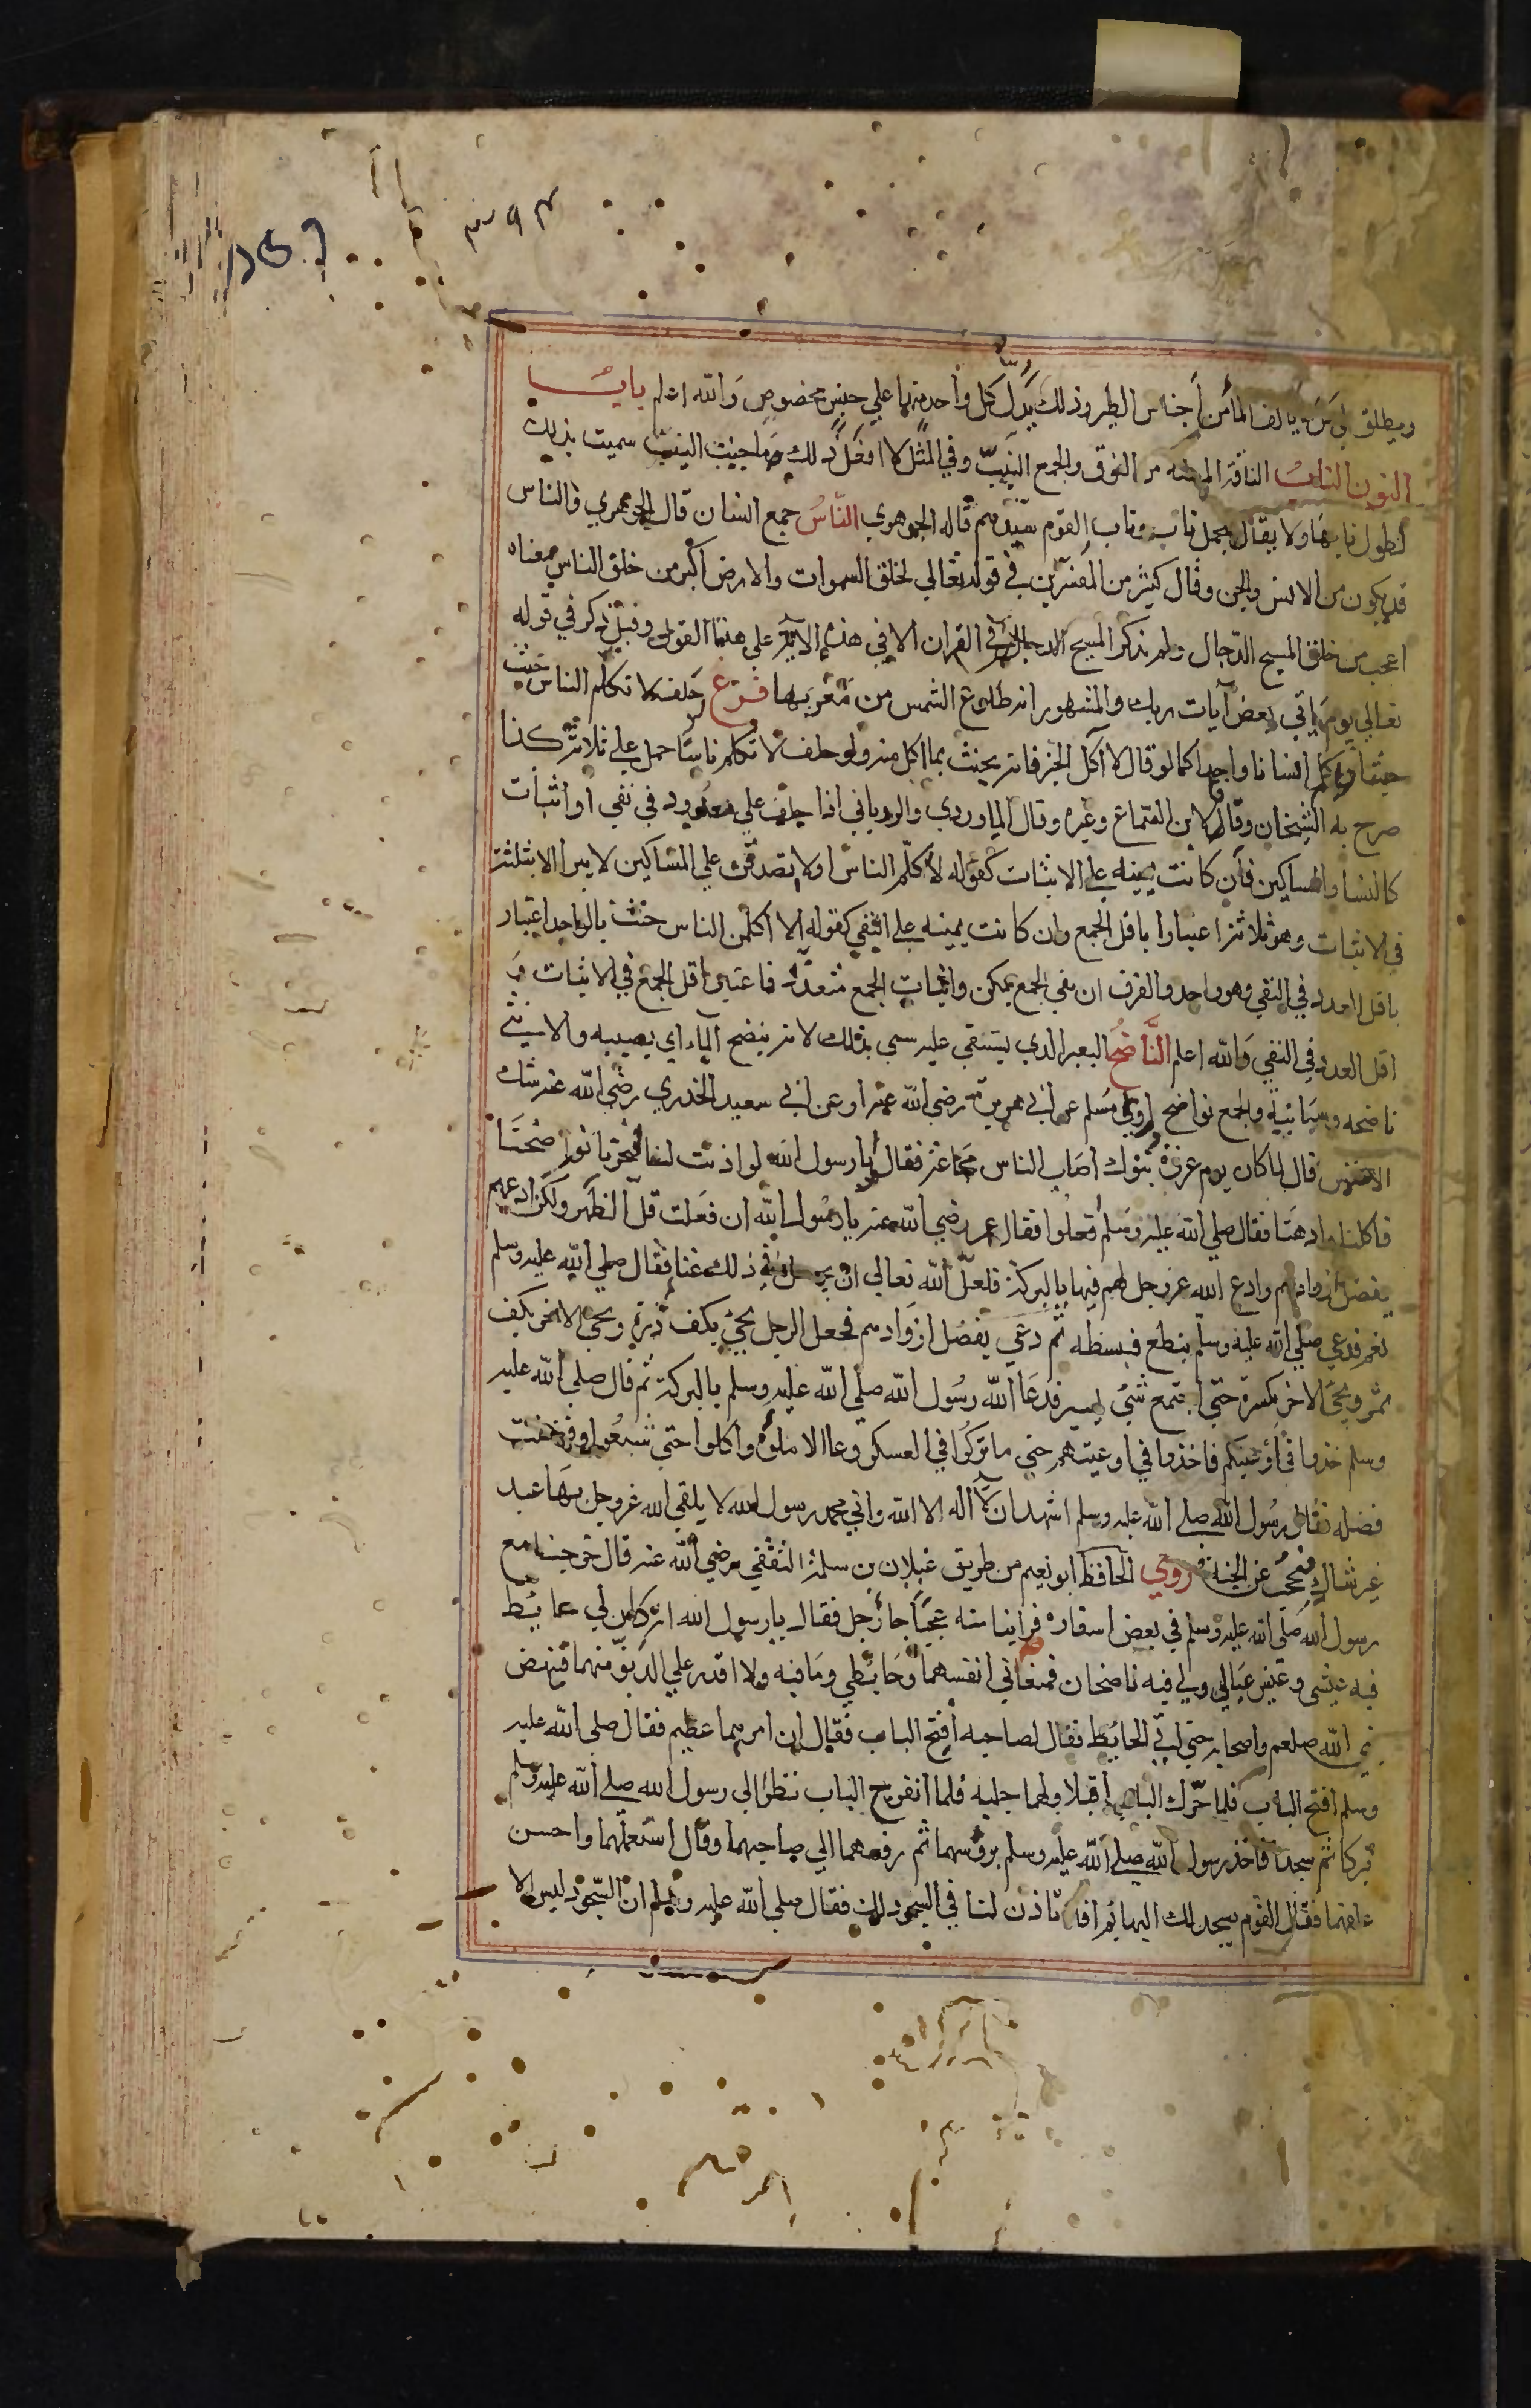 ويطلق على من يالف الما من أجناس الطير وذلك يدل كل واحد منها علي جنس مخصوص والله اعلم باب
النون الناب الناقة المسنة من النوق والجمع النيب وفي المثل لا افعل ذلك ما حنت النيب سميت بذلك
لطول نابها ولا يقال لجمل ناب وناب القوم سيدهم قاله الجوهري الناس جمع انسان قال الجوهري والناس
قد يكون من الانس والجن وقال كثير من المفسرين في قوله تعالي لخلق السموات والارض أكبر من خلق الناس معناه
اعجب من خلق المسيح الدجال ولم يذكر المسيح الدجال في القران الا في هذه الاية علي هذا القول وقيل ذكر في قوله
تعالي يوم ياتي بعض آيات ربك والمشهور انه طلوع الشمس من مغربها فرع حلف لا تكلم الناس حنث
حيثما كلم انسانا واحدا كما لو قال لا آكل الخبز فانه يحنث بما اكل منه ولو حلف لا تكلم ناسا حمل علي ثلاثة كذا
صرح به الشيخان وقال ابن القماع وغيره وقال الماوردي والروياني اذا حلف علي معدود في نفي او اثبات
كالنسا والمساكين فان كانت يمينه علي الاثبات كقوله لاكلم الناس او لا تصدقن علي المساكين لا يبرا الا بثلثة
في الاثبات وهو ثلاثة اعتبارا باقل الجمع وان كانت يمينه علي النفي كقوله لا اكلمن الناس حنث بالواحد اعتبار
باقل العدد في النفي وهو واحد والفرق ان نفي الجمع يمكن واثبات الجمع متعذر فاعتبر اقل الجمع في الاثبات و
اقل العدد في النفي والله اعلم الناضح البعير الذي يستقي عليه سمي بذلك لانه ينضح الماء اي يصيبه والانثي
ناضحه وسانية والجمع نواضح روي مسلم عن أبي هريرة رضي الله عنه او عن ابي سعيد الخدري رضي الله عنه شك
الاعمش قال لما كان يوم غزوة تبوك أصاب الناس مجاعة فقالوا يا رسول الله لو اذنت لنا فنحرنا نواضحنا
فاكلنا وادهنا فقال صلي الله عليه وسلم افعلوا فقال عمر رضي الله عنه يا رسول الله ان فعلت قل الظهر ولكن ادعهم
بفضل ازوادهم وادع الله عز وجل لهم فيها بالبركة فلعل الله تعالي ان يجعل في ذلك غنا فقال صلي الله عليه وسلم
نعم فدعي صلي الله عليه وسلم بنطع فبسطه ثم دعي بفضل ازوادهم فجعل الرجل يجئ بكف ذرة ويجئ الاخر بكف
تمر ويجئ الاخر بكسرة حتي اجتمع شئ يسير فدعا الله رسول الله صلي الله عليه وسلم بالبركة ثم قال صلي الله عليه
وسلم خذوا في أوعيتكم فاخذوا في اوعيتهم حتي ما تركوا في العسكر وعا الا ملؤه وأكلوا حتي شبعوا وفضلت
فضله فقال رسول الله صلي الله عليه وسلم اشهد ان لا اله الا الله واني محمد رسول الله لا يلقي الله عز وجل بها عبد
غير شاك فيحجب عن الجنة وروي الحافظ ابو نعيم من طريق غيلان بن سلمة الثقفي رضي الله عنه قال خرجنا مع
رسول الله صلي الله عليه وسلم في بعض اسفاره فراينا منه عجبا جا رجل فقال يا رسول الله انه كان لي حائط
فيه عيشي وعيش عيالي ولي فيه ناضحان فمنعاني انفسهما وحائطي وما فيه ولا اقدر علي الدنو منهما فنهض
نبي الله صلعم واصحابه حتي اتي الحائط فقال لصاحبه افتح الباب فقال ان امرهما عظيم فقال صلي الله عليه
وسلم افتح الباب فلما حرك الباب أقبلا ولهما جلبه فلما انفرج الباب نظرا الي رسول الله صلي الله عليه وسلم
فبركا ثم سجدا فاخذ رسول الله صلي الله عليه وسلم بروسهما ثم رفعهما الي صاحبهما وقال استعملهما واحسن
علفهما فقال القوم يسجد لك البهائم افلا تاذن لنا في السجود لك فقال صلي الله عليه وسلم ان السجود ليس الا